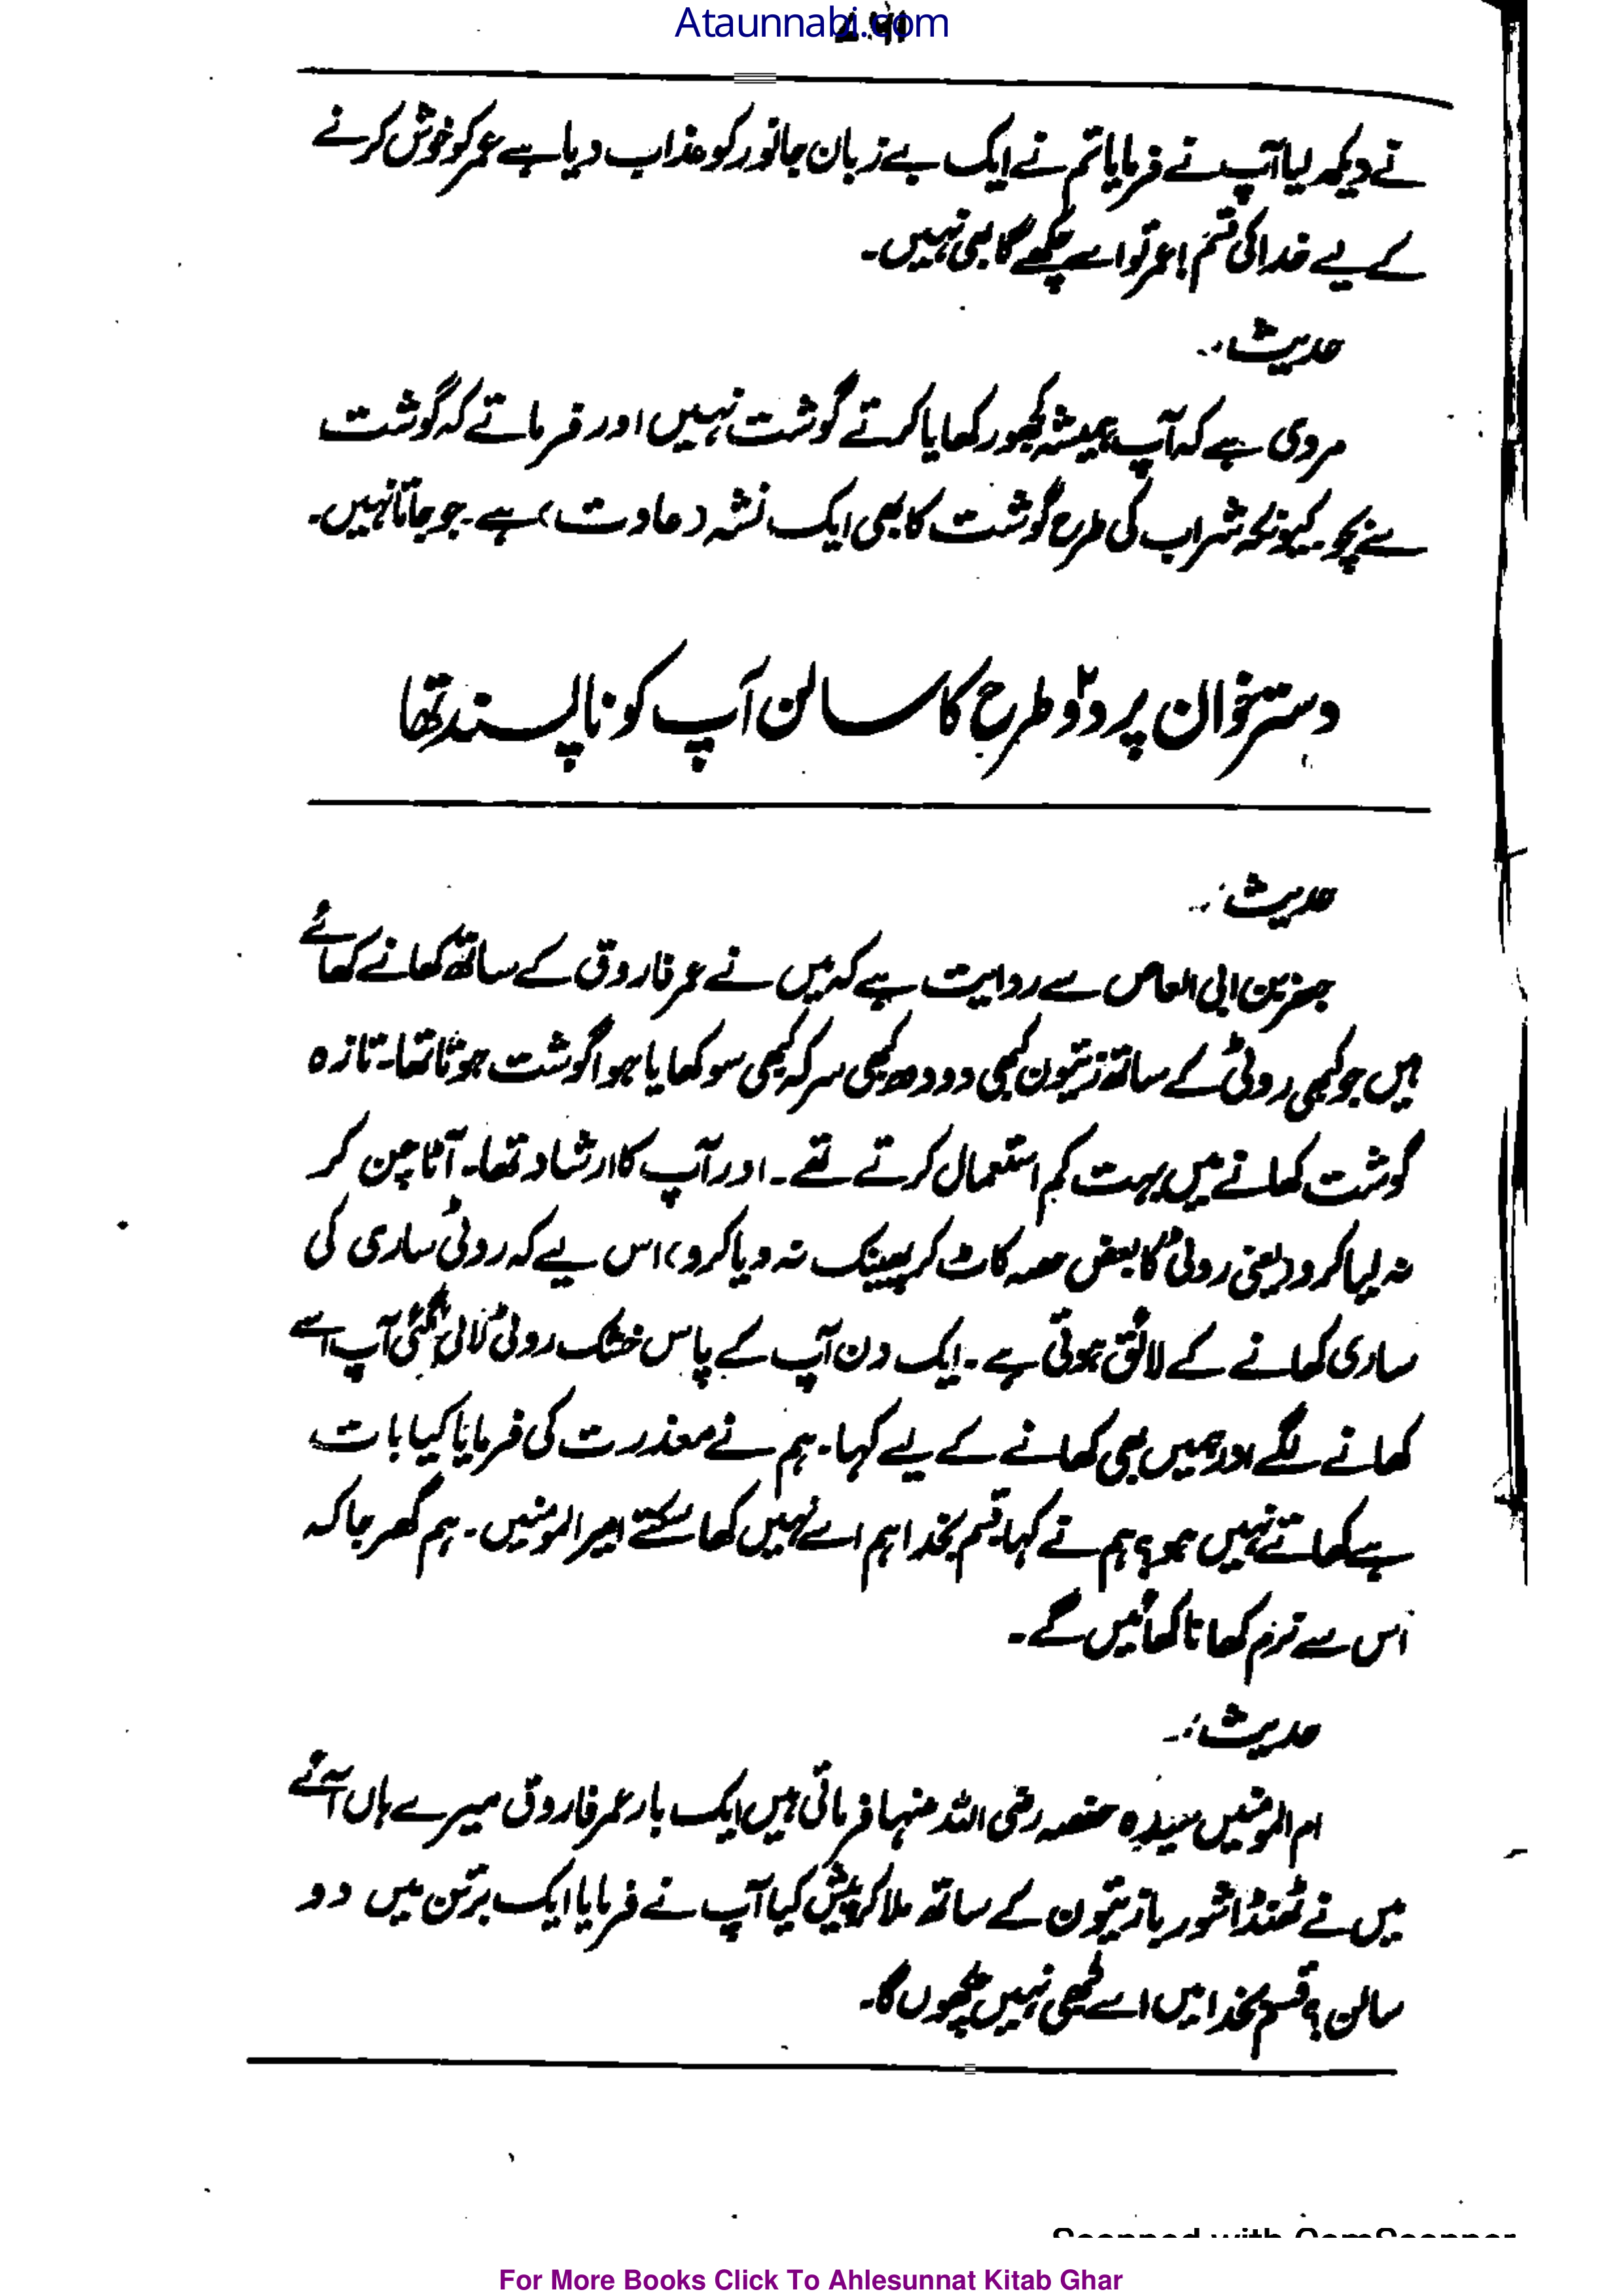 Ataunnabi.com
نے دیکھ لیا آپ نے فرمایا تم نے ایک بے زبان جانور کو عذاب دیا ہے عمر کو خوش کرنے
کے لیے خدا کی قسم! عمر تو اسے چکھے گا بھی نہیں۔
حدیث:۔
مروی ہے کہ آپ ہمیشہ کھجور کھایا کرتے گوشت نہیں اور فرماتے کہ گوشت
سے بچو۔ کیونکہ شراب کی طرح گوشت کا بھی ایک نشہ (عادت) ہے۔ جو جاتا نہیں۔
دسترخوان پر دو۲ طرح کا سالن آپ کو ناپسند تھا
حدیث:۔
بن ابی العاص سے روایت ہے کہ میں نے عمر فاروق کے ساتھ کھانے کھائے
ہیں جو کبھی روٹی کے ساتھ زیتون کبھی دودھ کبھی سرکہ کبھی سوکھایا ہوا گوشت ہوتا تھا۔ تازہ
گوشت کھانے میں بہت کم استعمال کرتے تھے۔ اور آپ کا ارشاد تھا۔ آٹا چن کر
نہ لیا کرو (یعنی روٹی کا بعض حصہ کاٹ کر پھینک نہ دیا کرو) اس لیے کہ روٹی ساری کی
ساری کھانے کے لائق ہوتی ہے۔ ایک دن آپ کے پاس خشک روٹی لائی گئی آپ اسے
کھانے لگے اور ہمیں بھی کھانے کے لیے کہا۔ ہم نے معذرت کی فرمایا کیا بات
ہے کھاتے نہیں ہو؟ ہم نے کہا۔ قسم بخدا ہم اسے نہیں کھا سکتے امیر المومنیں۔ ہم گھر جا کہ
اس سے نرم کھانا کھائیں گے۔
حدیث:۔
ام المومنیں سیدہ حفصہ رضی اللہ عنہا فرماتی ہیں ایک بار عمر فاروق میرے ہاں آئے
میں نے ٹھنڈا شوربا زیتون کے ساتھ ملا کر پیش کیا آپ نے فرمایا ایک برتن میں دو
سالن؟ قسم بخدا میں اسے کبھی نہیں چکھوں گا۔
Scanned with CamScanner
For More Books Click To Ahlesunnat Kitab Ghar